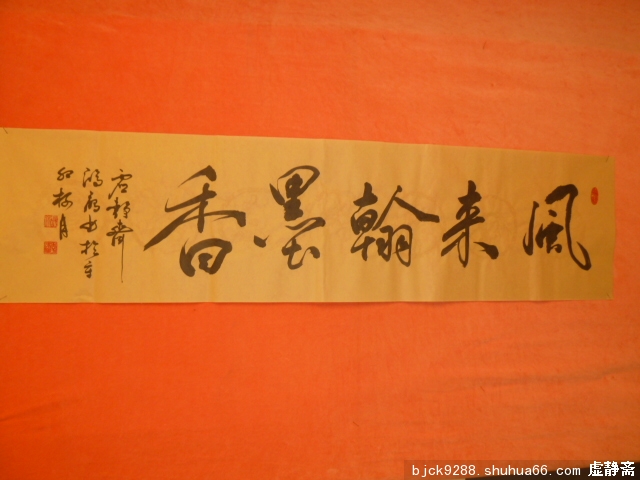 風来翰墨香
虚靜齋
书於辛
卯月
bjck9288.shuhua66.com 虚静斋